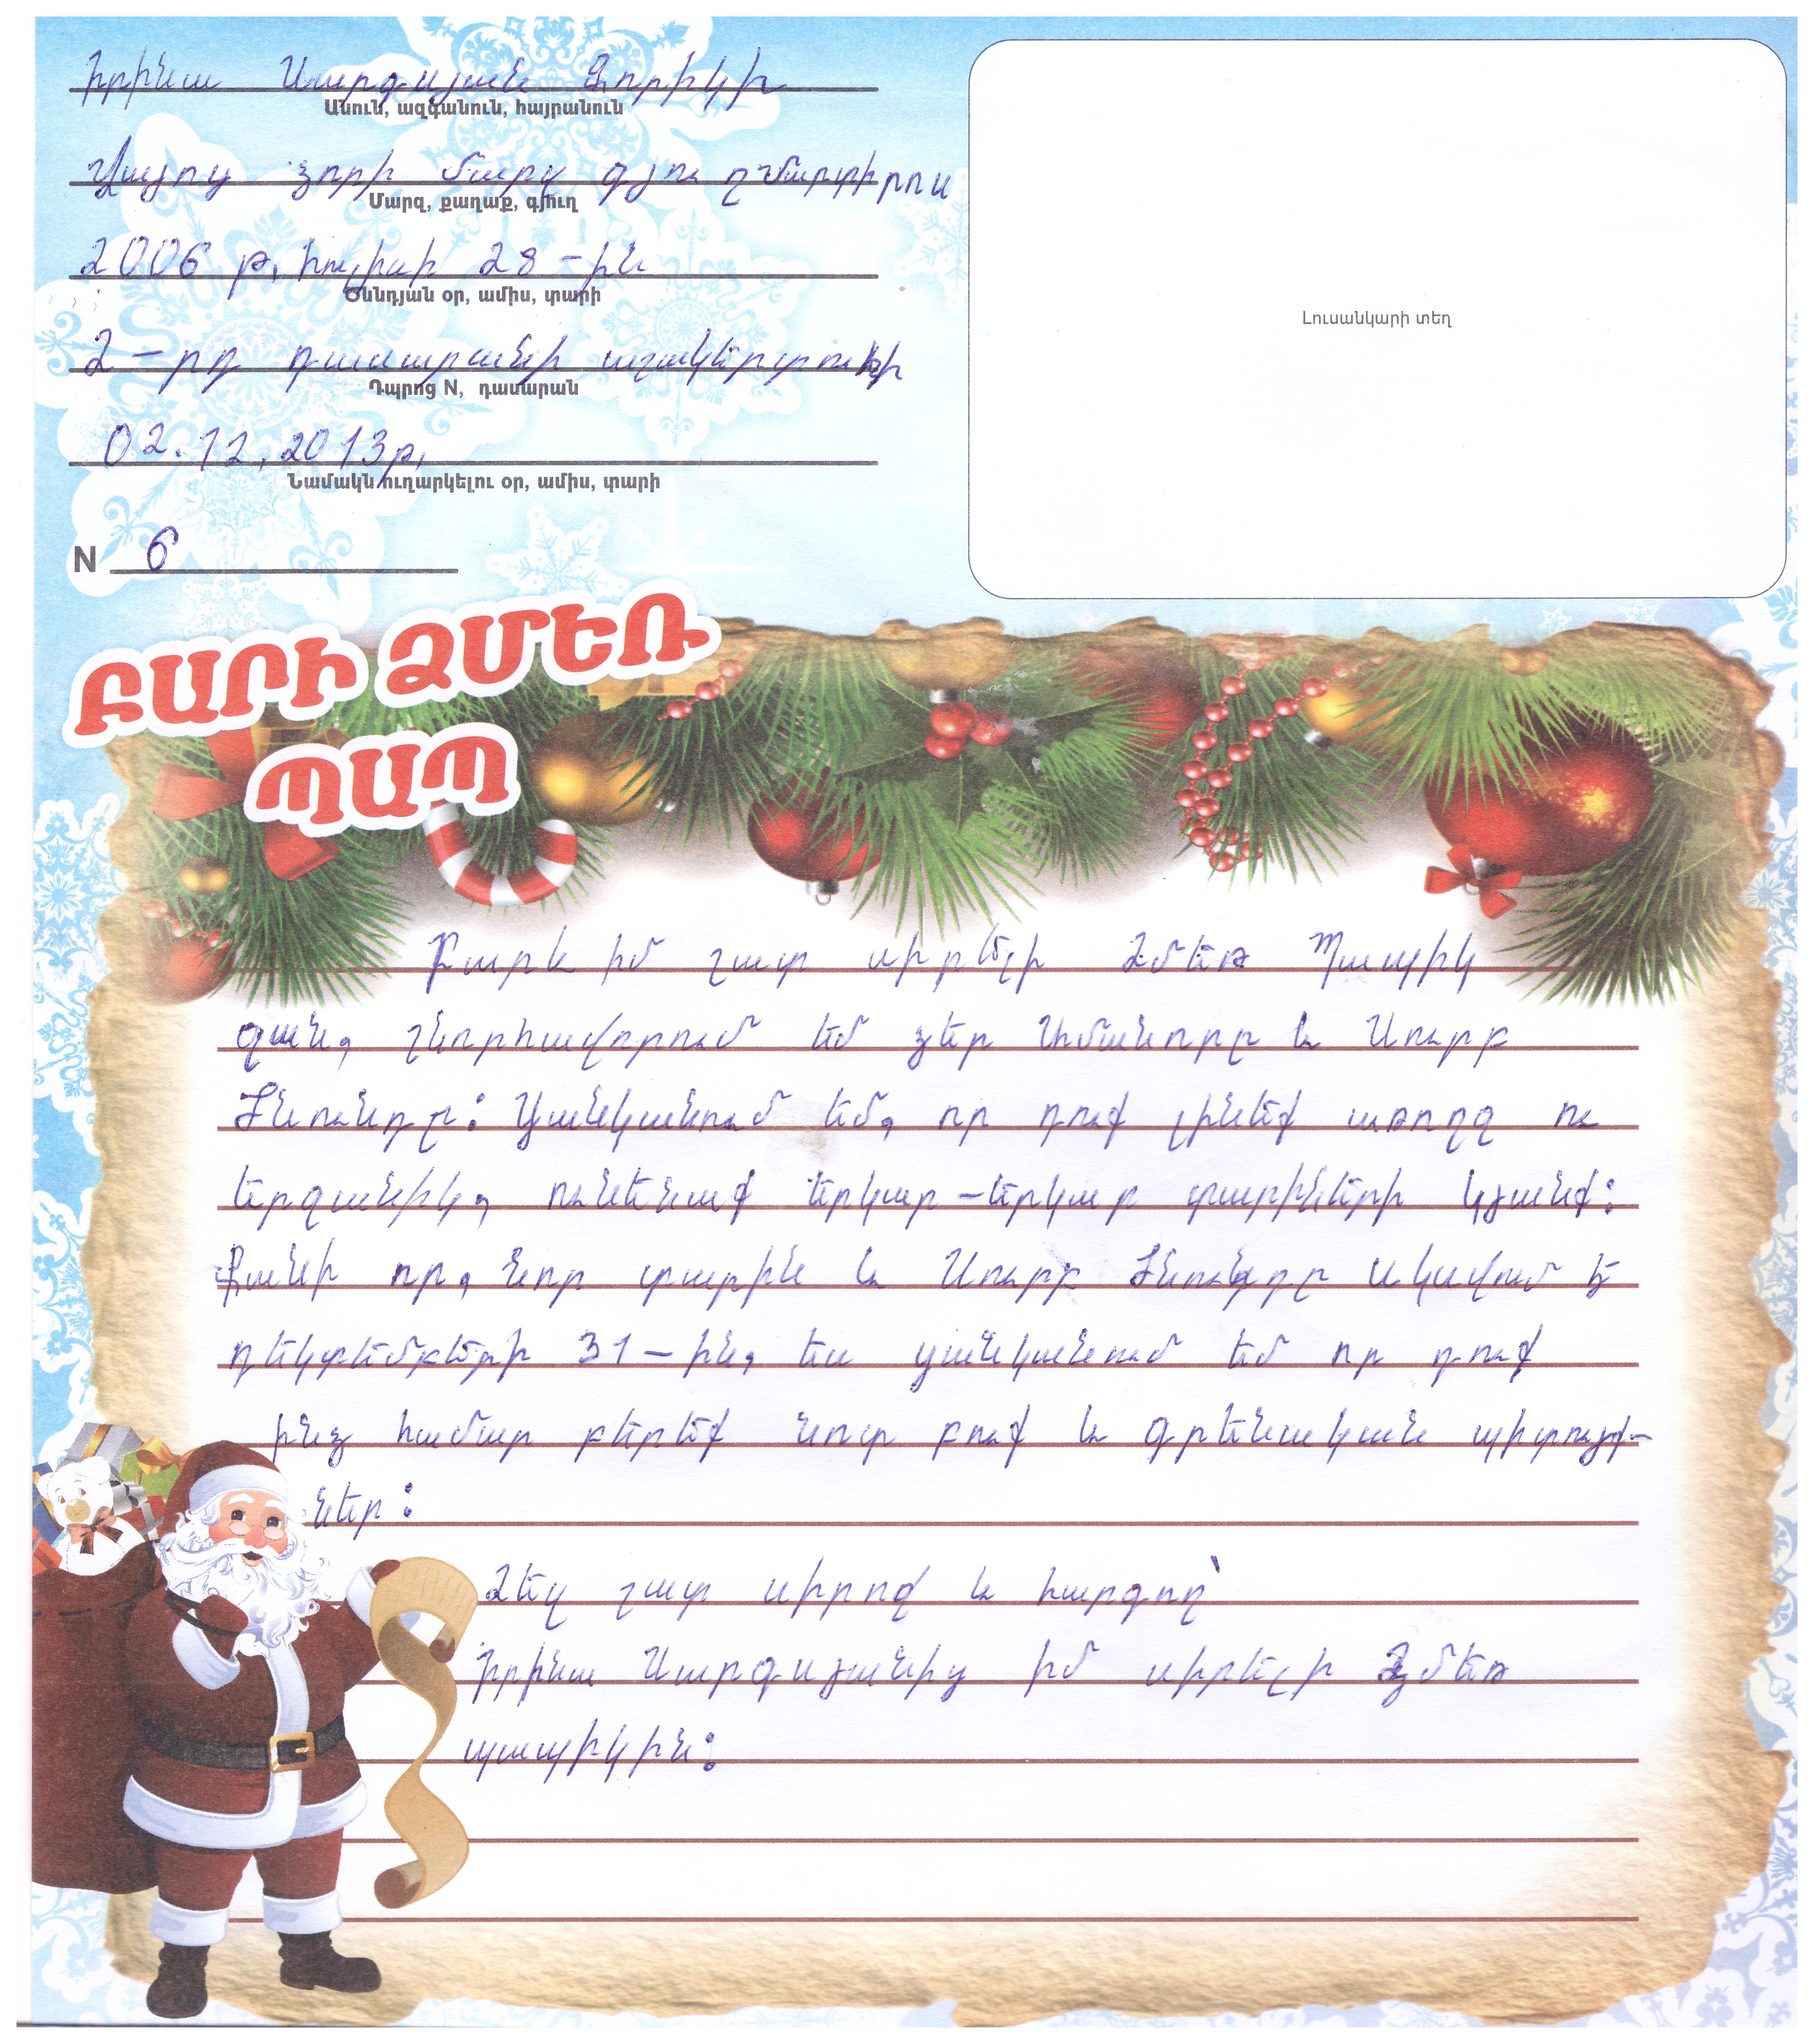 Իրինա Սարգսյան Ցոլիկի
Անուն, ազգանուն, հայրանուն
Վայոց ձորի մարզ գյուղ Մարտիրոս
Մարզ, քաղաք, գյուղ
2006 թ. հուլիսի 28-ին
Ծննդյան օր, ամիս, տարի
2-րդ դասարանի աշակերտուհի
Դպրոց N, դասարան
02.12.2013թ.
Նամակն ուղարկելու օր, ամիս, տարի
N 6
Լուսանկարի տեղ
ԲԱՐԻ ՁՄԵՌ
ՊԱՊ
Բարև իմ շատ սիրելի Ձմեռ Պապիկ
ջան, շնորհավորում եմ ձեր Ամանորը և Սուրբ
Ծնունդը: Ցանկանում եմ, որ դուք լինեք առողջ ու
երջանիկ, ունենաք երկար-երկար տարիների կյանք:
Քանի որ, նոր տարին և Սուրբ Ծնունդը սկսվում է
դեկտեմբերի 31-ին, ես ցանկանում եմ որ դուք
ինձ համար բերեք նոտ բուք և գրենական պիտույք-
ներ:
Ձեզ շատ սիրով և հարգող՝
Իրինա Սարգսյանից իմ սիրելի Ձմեռ
պապիկին: